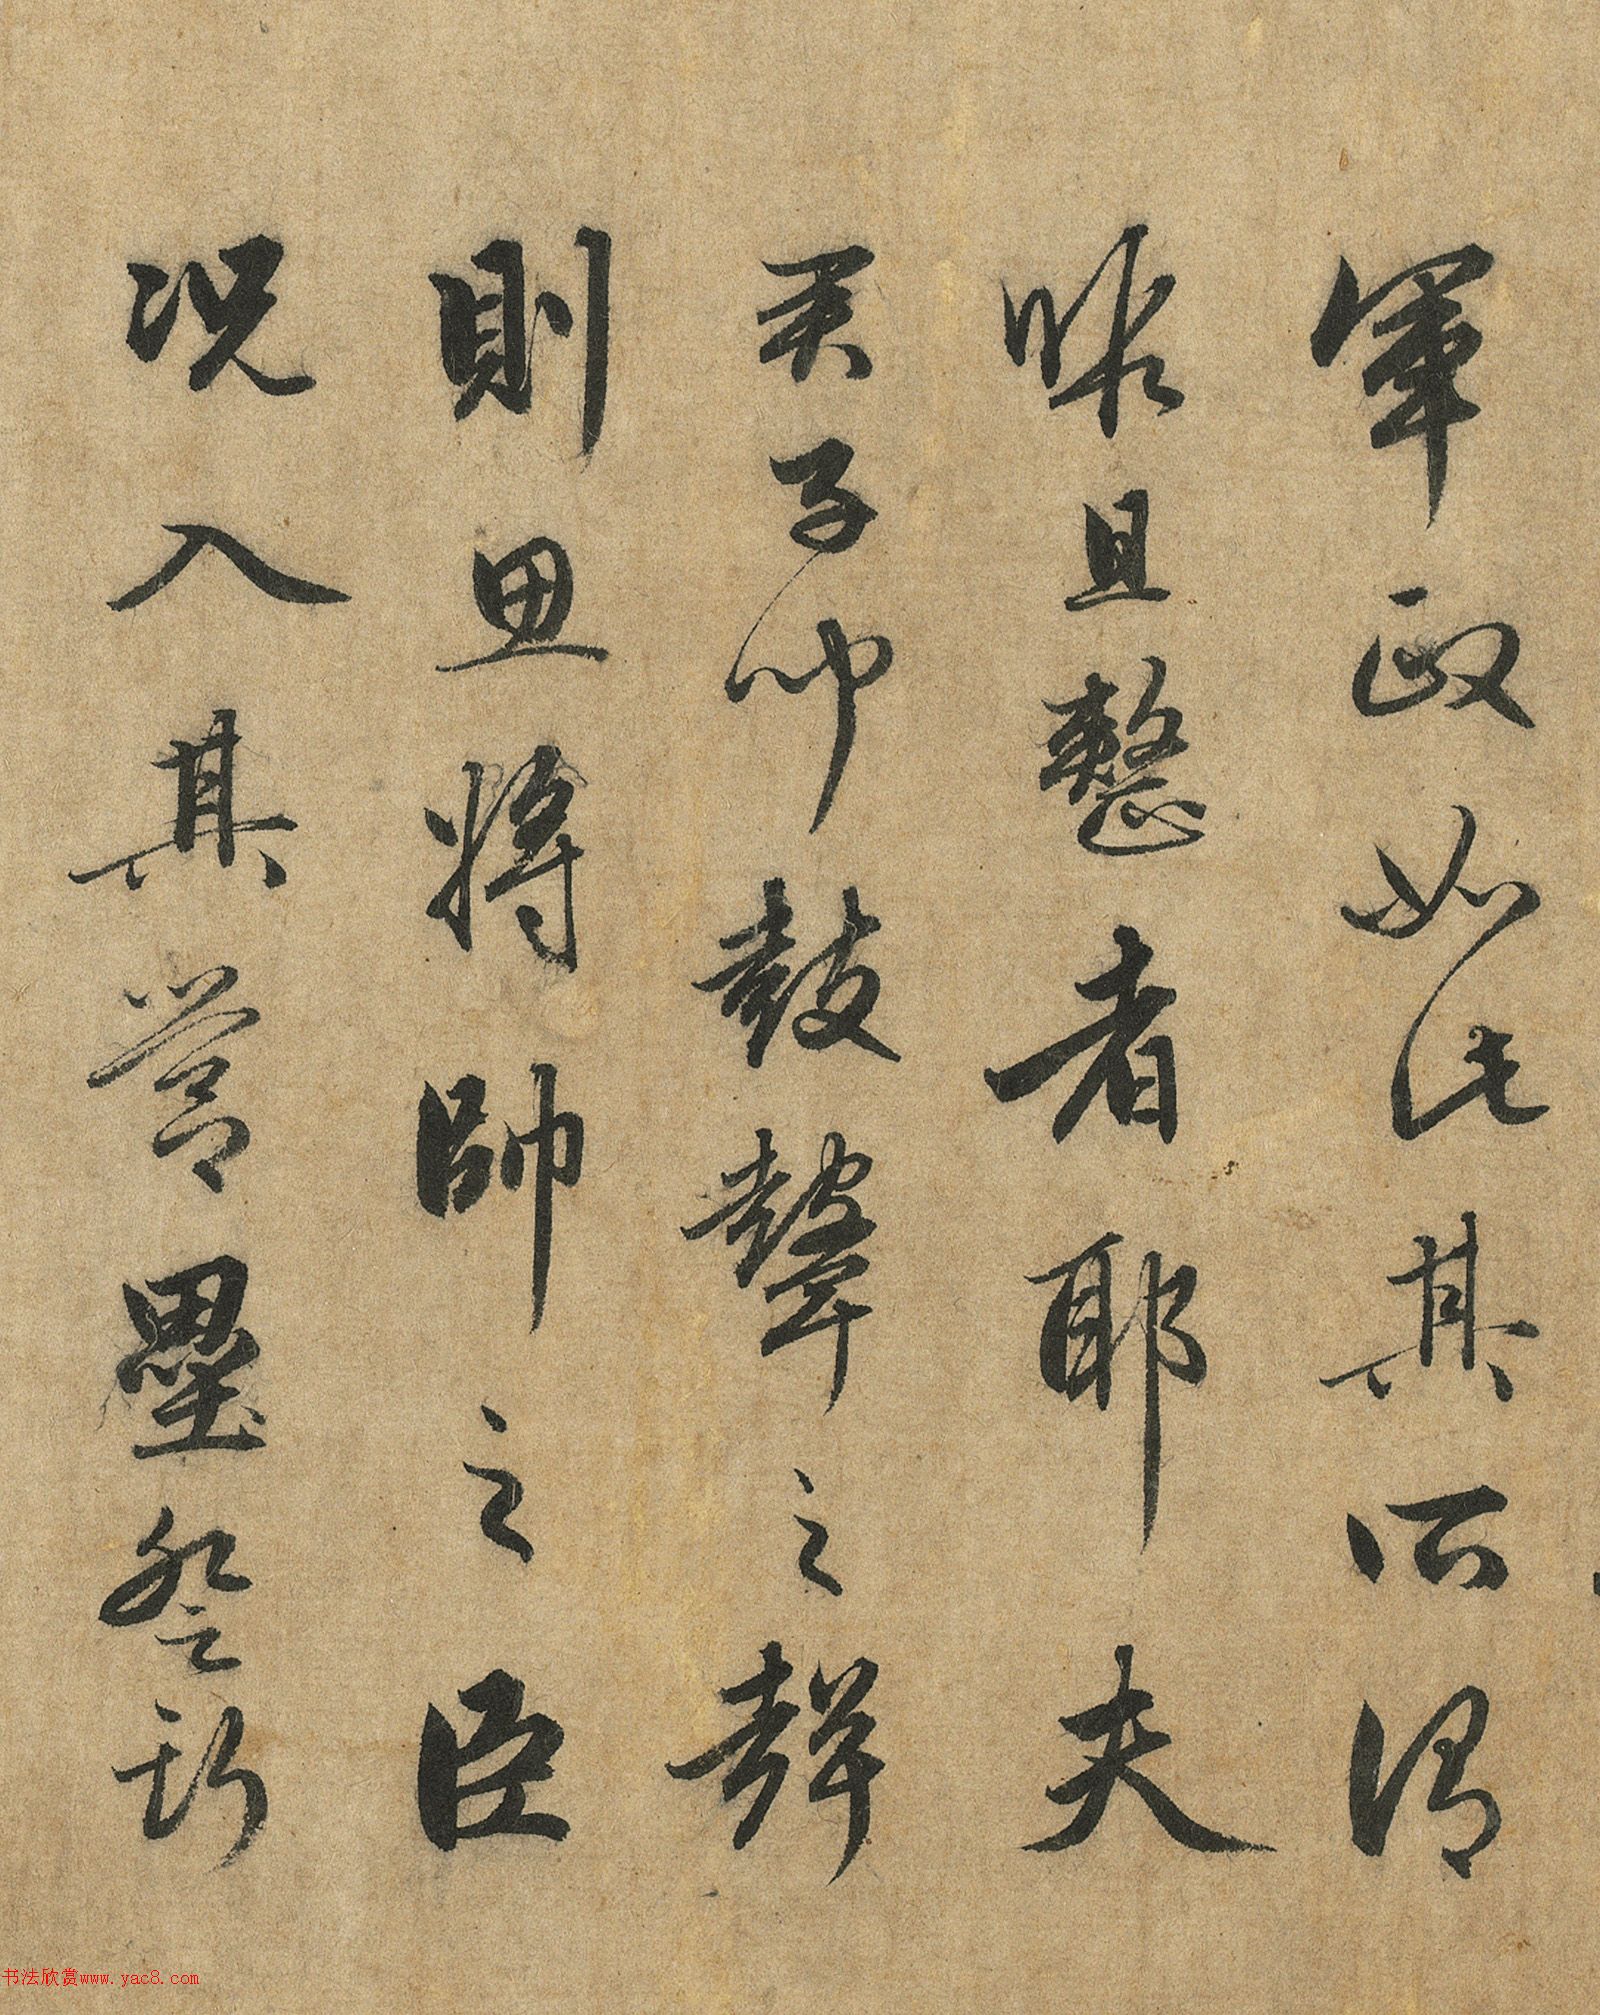 軍政如此其所謂
暇且整者耶夫
君子聞鼓鼙之聲
則思將帥之臣
况入其營壘登斯
书法欣赏www.yac8.com